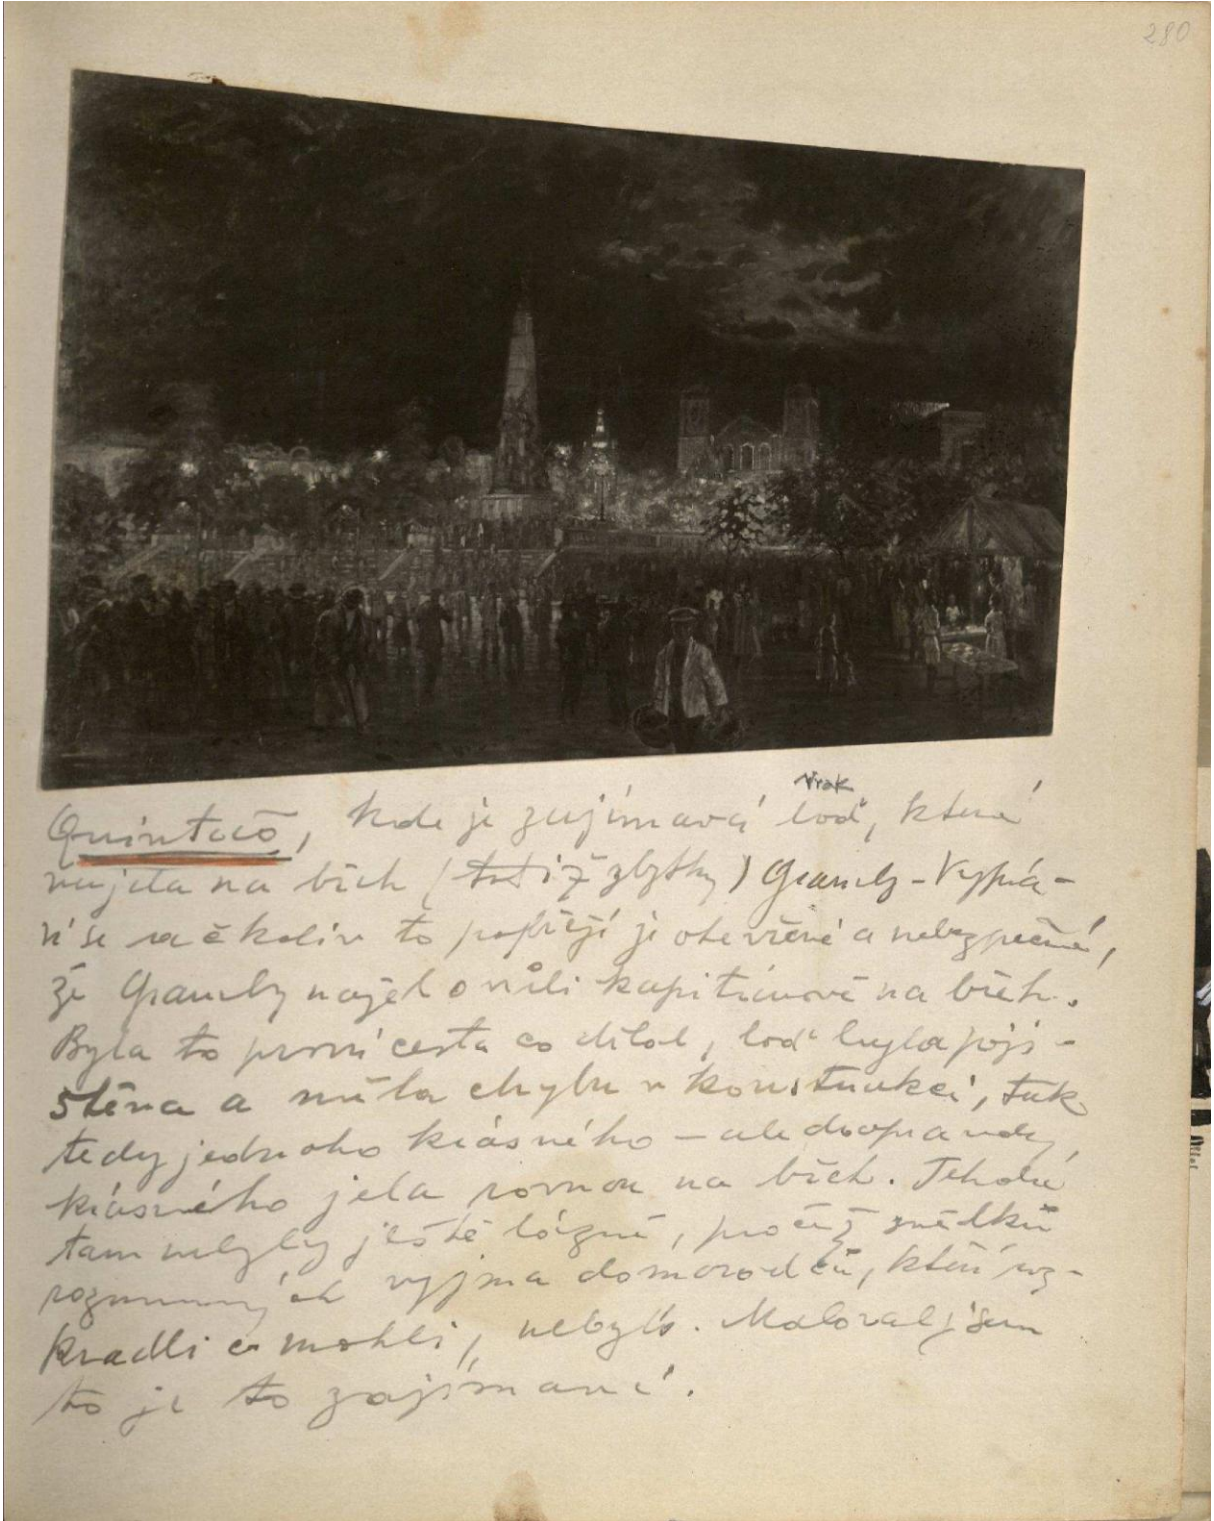 280
Vrak
Quintaö, kde je zajímavá loď, která
najela na břeh (totiž zbytky) Gramby - Vyprá-
ví se ačkoliv to popřejí je otevřené a nebezpečné,
že Gramby najel o vůli kapitánově na břeh.
Byla to první cesta co dělal, loď byla poji-
štěna a měla chybu v konstrukci, tak
tedy jednoho krásného - ale doopravdy
krásného jela rovnou na břeh. Tehdá
tam nebyly ještě lázně, pročež svědků
rozumných vyjma domorodců, kteří roz-
kradli co mohli, nebylo. Maloval jsem
to je to zajímavé.